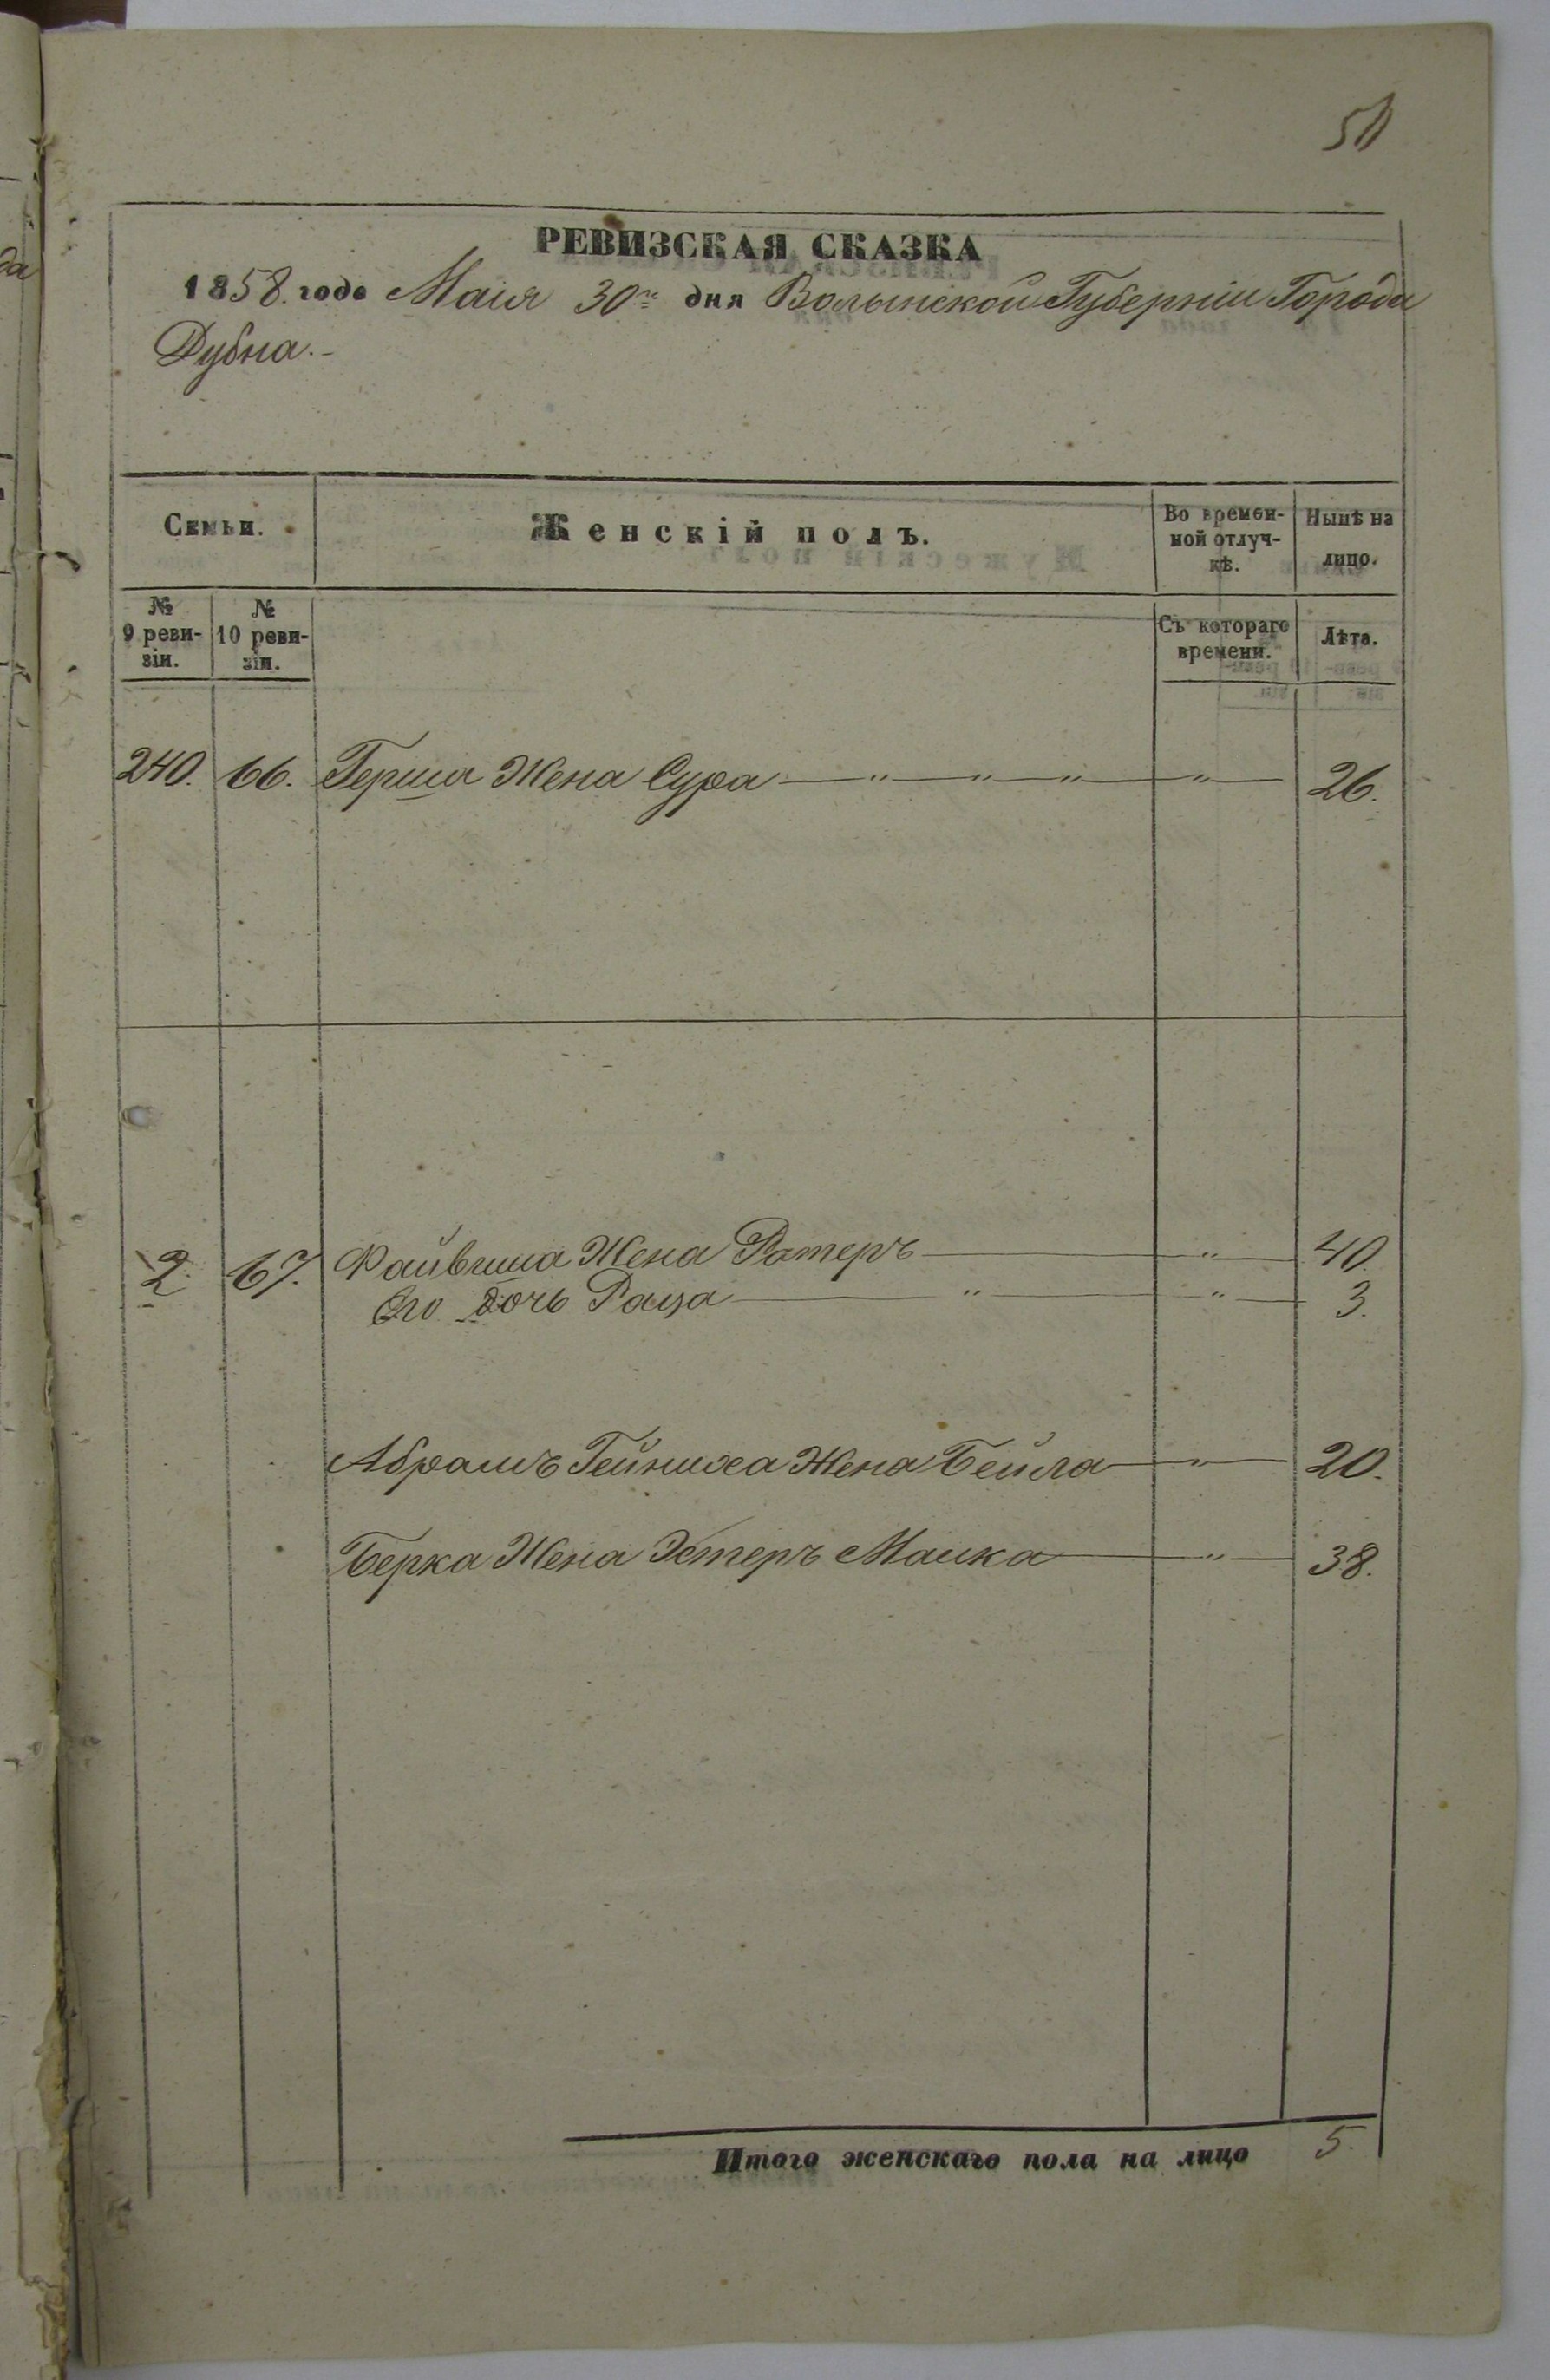 РЕВИЗСКАЯ СКАЗКА
1858. года Маія 30го дня Волынской Губерніи Города
Дубна.
Семьи. Женскій полъ. Во времен- Нынѣ на
ной отлуч- лицо.
кѣ.
№ № Съ котораго Лѣта.
9 реви- 10 реви- времени.
зіи. зіи.
240. 66. Герша Жена Сура 26.
2. 67. Файвиша Жена 40.
Его дочь 3.
Абрамъ Жена Бейла 20.
Берка Жена Эстеръ Малка 38.
Итого женскаго пола на лицо 5.